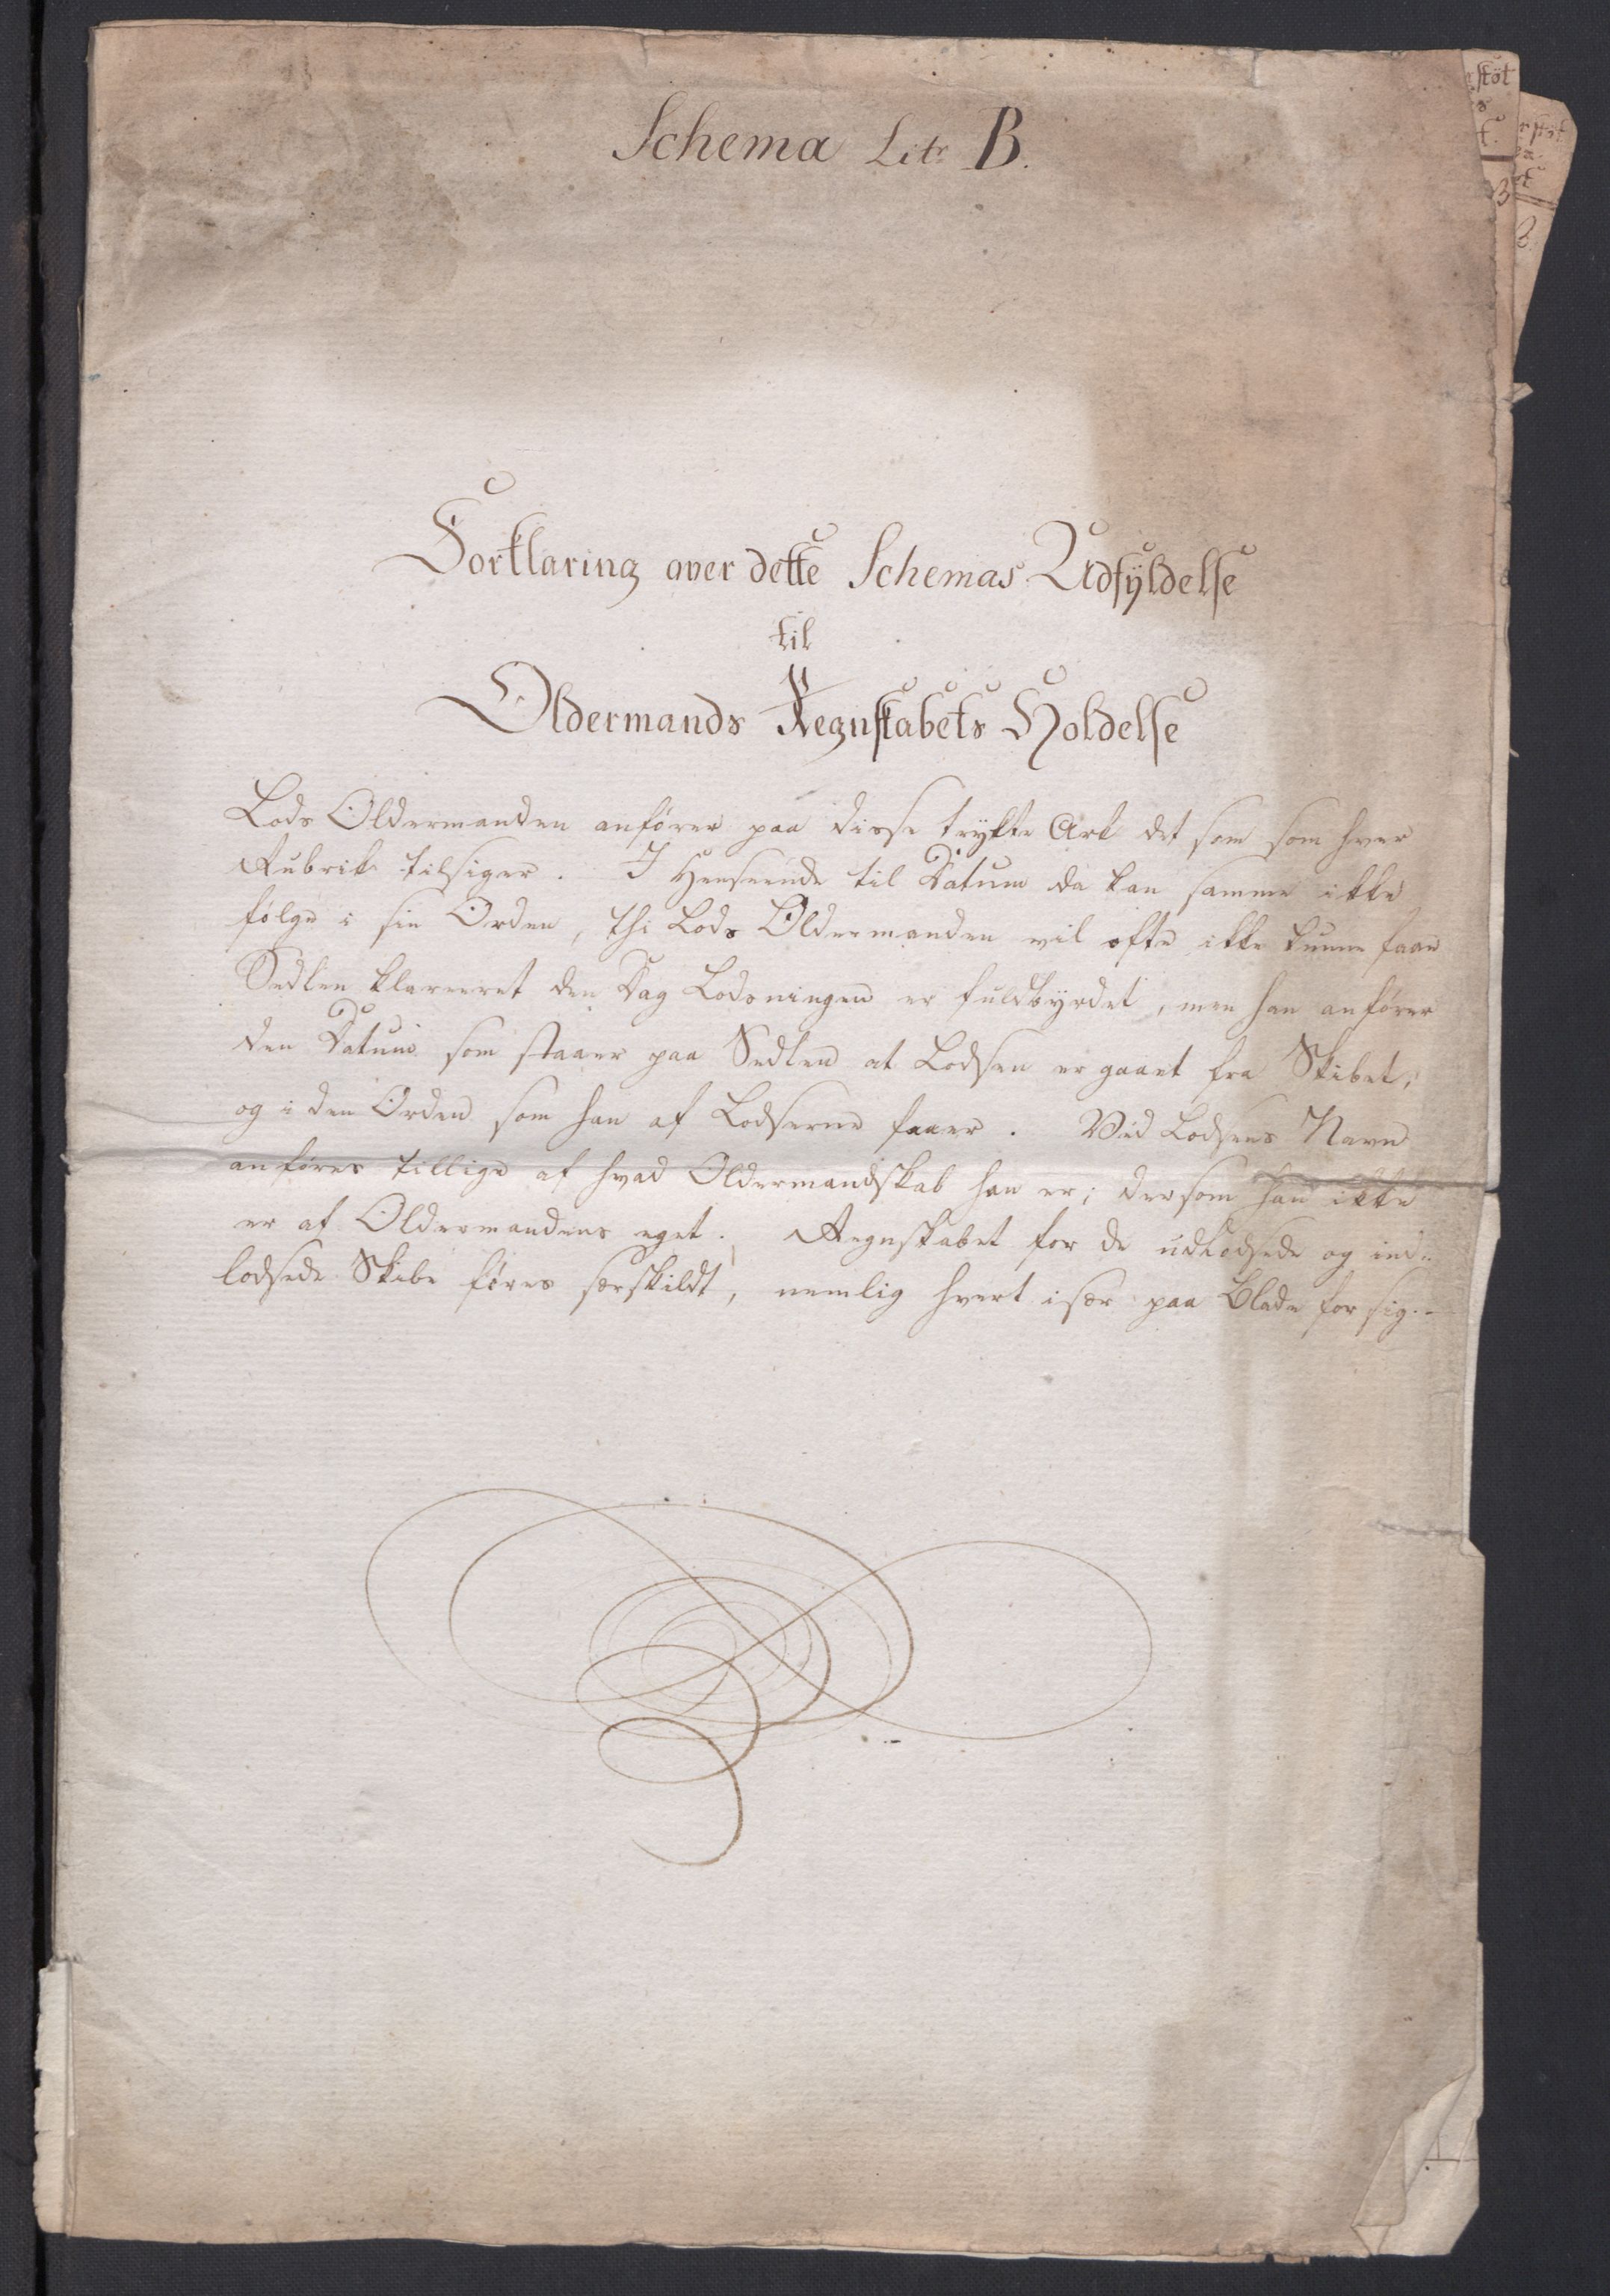 Schema Litr B.
Forklaring over dette Schemas Udfyldelse
til
Oldermands Regnskabets Holdelse
Lods Oldermanden anfører paa disse trykte Ark det som som hver
Rubrik tilsiger. I Henseende til Datum da kan samme ikke
følge i sin Orden, thi Lods Oldermanden vil ofte ikke kunne faae
Sedlen klareret den Dag Lodsningen er fuldbyrdet, men han anfører
den Datum som staaer paa Sedlen at Lodsen er gaaet fra Skibet,
og i den Orden som han af Lodserne faaer. Ved Lodsens Navn
anføres tillige af hvad Oldermandskab han er; dersom han ikke
er af Oldermandens eget. Regnskabet for de udlodsede og ind-
lodsede Skibe føres særskildt, nemlig hvert især paa Blade for sig.-